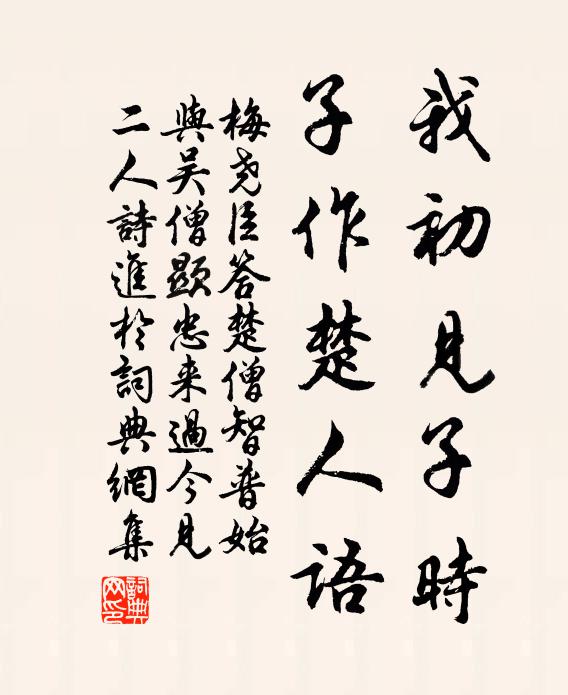 我初見子時
子作楚人語
梅堯臣答楚僧智普始
與吴僧顯忠来過今見
二人詩進於詞典網集
詞典網印